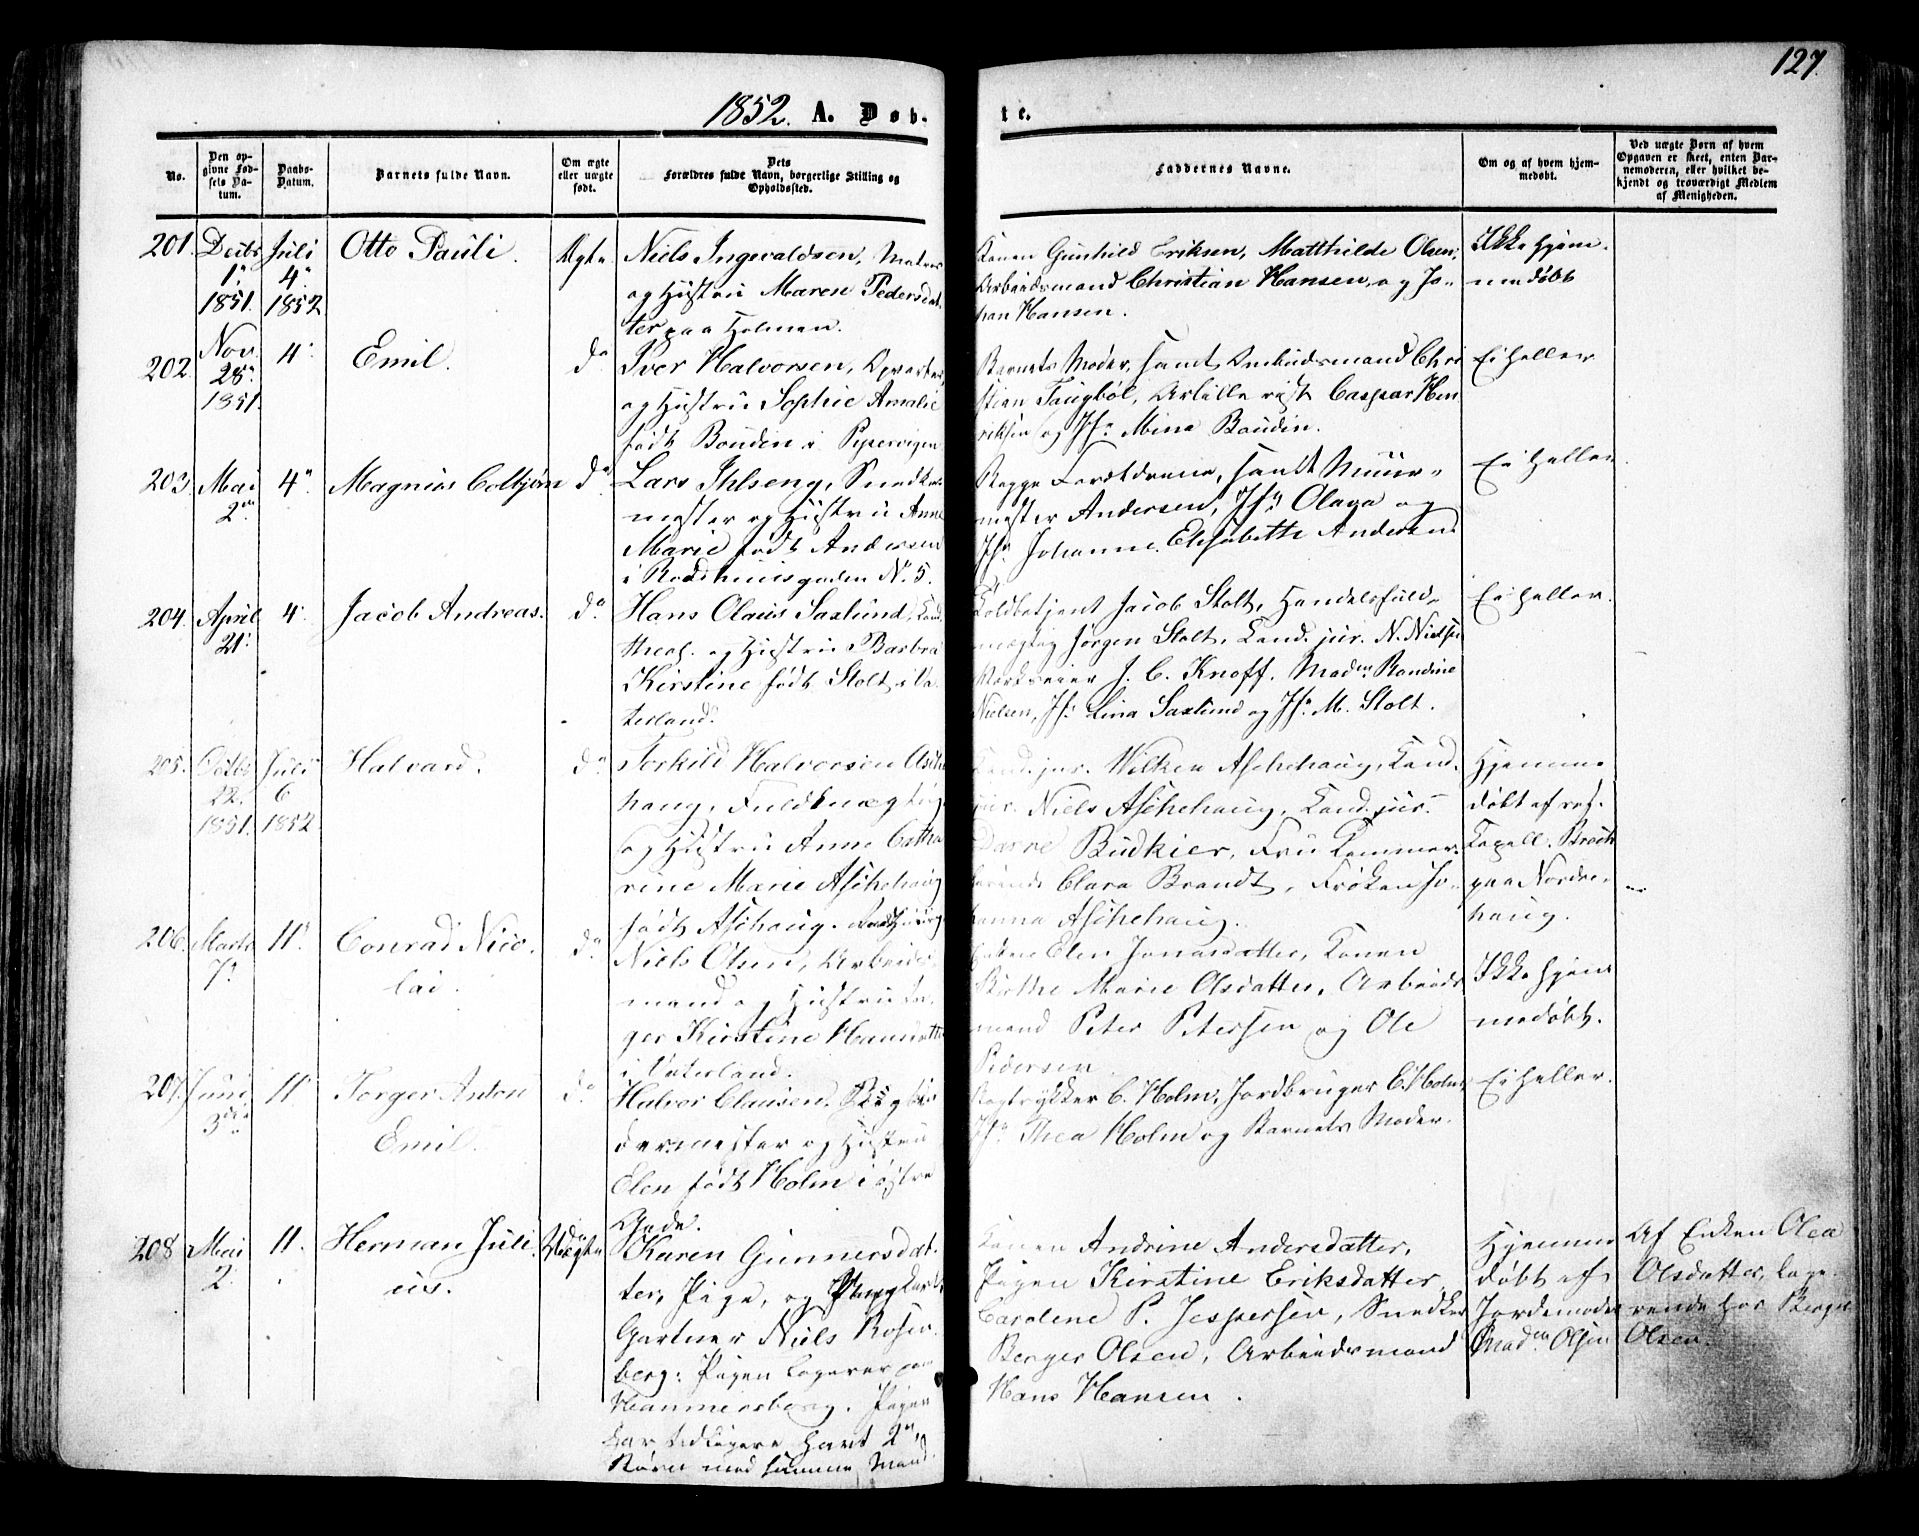 127.
1852. A. Døb-
te.
No.
Den op-
givne Fød-
sels Da-
tum.
Daabs-
Datum.
Barnets fulde Navn.
Om ægte
eller uægte
født.
Dets
Forældres fulde Navn, borgerlige Stilling og
Opholdssted.
Faddernes Navne.
Om og af hvem hjem-
medøbt.
Ved uægte Børn af hvem
Opgaven er skeet, enten Bar-
nemoderen, eller hvilket be-
kjendt og troværdigt Medlem
af Menigheden.
201.
Decbr
1.
1851.
Juli
4.
1852
Otto Pauli.
Ægte
Niels Ingevaldsen,
og Hustru Maren Pedersdat-
ter paa Holmen.
Konen Gunhild Eriksen, Matthilde Olsen,
Arbeidsmand Christian Hansen, og Jo-
han Hansen.
Ikke hjem-
medøbt
202.
Nov.
28.
1851.
4.
Emil.
do
Iver Halvorsen, Opvarter,
og Hustru Sophie Amalie
født Boudin i Pipervigen
Barnets Moder, samt Ombudsmand Chri
stian Taugbøl, Artillerist Caspar Hen
riksen og Jfr. Mina Baudin.
Ei heller
203.
Mai
2den
4.
Magnus Colbjørn
do
Lars Ihlseng, Snedker
mester og Hustru Anne
Marie født Andersen
i Raadhuusgaden No. 5.
Begge Forældrene, samt Muur-
mester Andersen, Jfr. Olava og
Jfr. Johanne Elisabethe Andersen.
Ei heller.
204.
April
21.
4.
Jacob Andreas.
do
Hans Olaus Saxlund, Cand.
theol. og Hustru Barbra
Kirstine født Stolt, i Va
terland.
Toldbetjent Jacob Stolt, Handelsfuld-
mægtig Jørgen Stolt, Cand. jur. N. Nielsen
Værkseier J. C. Knoff. Madm. Randine
Nielsen, Jfr. Lina Saxlund og Jfr. M. Stolt.
Ei heller.
205.
Octbr
22.
1851.
Juli
6
1852
Halvard.
do
Torkild Halvorsen Asche
haug, Fuldmægtig
og Hustru Anne Catha
rine Marie Aschehaug
født Aschehaug.
Cand. jur. Wilken Aschehaug, Cand.
jur. Niels Aschehaug, Cand. jur.
Budkier, Fru Kammer-
Clara Brandt, Frøken Jo-
hanna Aschehaug.
Hjemme
døbt af res.
Capell. Broch
paa Nordre-
haug.
206.
Marts
7.
11.
Conrad Nico-
lai.
do
Niels Olsen, Arbeids-
mand og Hustru In-
ger Kirstine Hansdatter
i Vaterland.
Enken Elen Jonasdatter, Konen
Birthe Marie Olsdatter, Arbeids
mand Peter Petersen og Ole
Pedersen
Ikke hjem
medøbt.
207.
Juni
3die
11
Torger Anton
Emil.
do
Halvor Clausen, Bogbin
dermester og Hustru
Elen født Holm i østre
Gade.
Bogtrykker C. Holm, Jordbruger E. Holm,
Jfr. Thea Holm og Barnets Moder.
Ei heller.
208
Mai
2.
11.
Herman Juli
us.
Uægte
Karen Gunnersdat-
ter, Pige, og Ungkarl,
Gartner Niels Rosen-
berg: Pigen logerer paa
Hammersborg. Pigen
har tidligere havt 2de
Børn med samme Mand.
Konen Andrine Andersdatter,
Pigen Kirstine Eriksdatter,
Carolene P. Jespersen, Snedker
Berger Olsen, Arbeidsmand
Hans Hansen.
Hjemme
døbt af
Jordemoder
Madm. Olsen
Af Enken Olea
Olsdatter, loge-
rende hos Berger
Olsen.